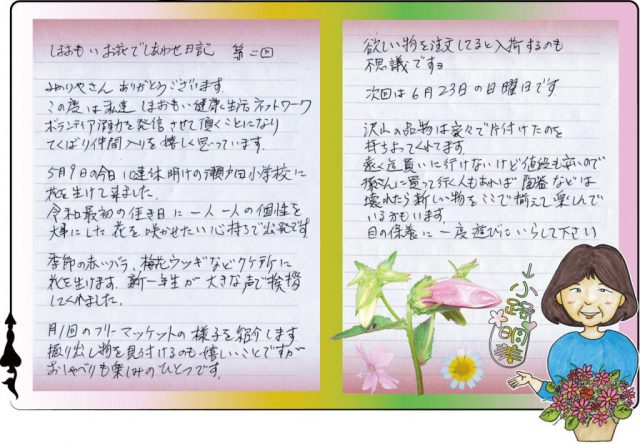 しおもいお花でしあわせ日記 第二回
みのりやさんありがとうございます。
この度は私達しおもい健康生活ネットワーク
ボランティア活動を発信させて頂くことになり
てくばり仲間入りを嬉しく思っています。
5月9日の今日10連休明けの瀬戸田小学校に
花を生けて来ました。
令和最初の佳き日に一人一人の個性を
大事にした花を咲かせたい心持ちで出発です
季節の赤いバラ、梅花ウツギなど
花を生けます。新一年生が大きな声で挨拶
してくれました。
月1回のフリーマーケットの様子を紹介します
掘り出し物を見付けるのも嬉しいことですが
おしゃべりも楽しみのひとつです。
欲しい物を注文してると入荷するのも
不思議ですョ
次回は6月23日の日曜日です
沢山の品物は家々で片付けたのを
持ちよってくれてます。
遠く迄買いに行けないけど値段も安いので
孫さんに買って行く人もあれば陶器などは
壊れたら新しい物をここで揃えて楽しんで
いる方もいます。
目の保養に一度遊びにいらして下さい
小路明美